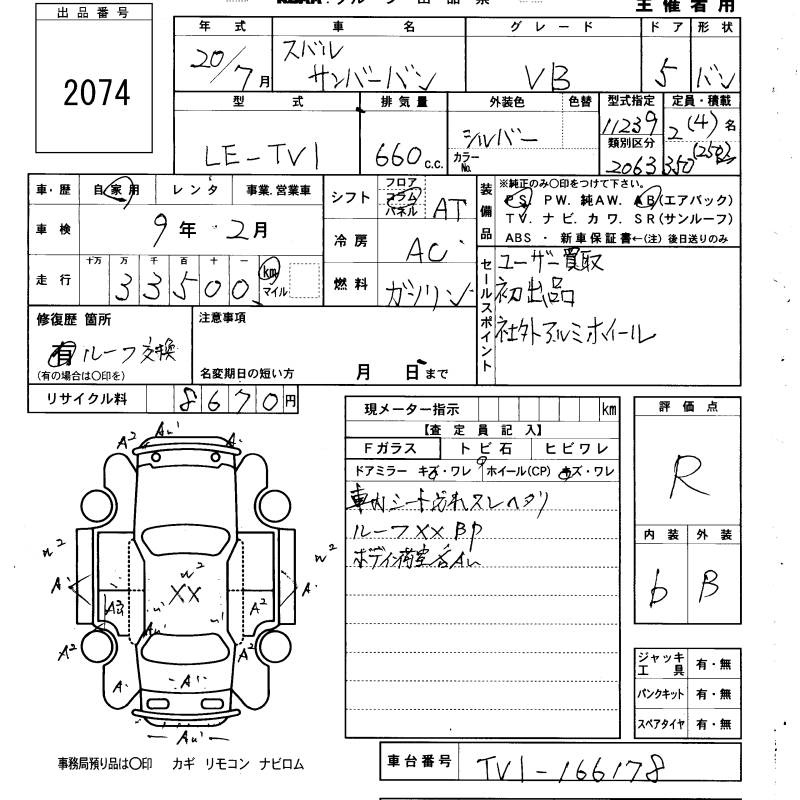 出品番号
2074
主催者用
年式 車名 グレード ドア 形状
20/7月 スバル サンバーバン VB 5 バン
型式 排気量 外装色 色替 型式指定 定員・積載
LE-TV1 660c.c. シルバー カラーNo. 11239 2(4)名
類別区分
2063 350(250)
車・歴 自家用 レンタ 事業.営業車
車検 9年 2月
走行 十万 万 千 百 十 一 km マイル
33500
シフト フロア コラム パネル AT
冷房 AC
燃料 ガソリン
装備品
※純正のみ〇印をつけて下さい。
PS PW. 純AW. AB(エアバック)
TV. ナビ. カワ. SR(サンルーフ)
ABS ・ 新車保証書←(注) 後日送りのみ
セールスポイント
ユーザー買取
初出品
社外アルミホイール
修復歴 箇所
有 ルーフ交換
(有の場合は〇印を)
注意事項
名変期日の短い方 月 日まで
リサイクル料 8670円
現メーター指示 km
【査定員記入】
Fガラス トビ石 ヒビワレ
ドアミラー キズ・ワレ ホイール(CP) キズ・ワレ
車内シート汚れスレヘタリ
ルーフXX BP
ボディ荷室各Au
評価点
R
内装 外装
b B
A² Au' A.
w² w² w²
A. XX A.
A³u A²
u' u'
Au'
A² A²
A. A'
Au'
ジャッキ工具 有・無
パンクキット 有・無
スペアタイヤ 有・無
事務局預り品は〇印 カギ リモコン ナビロム
車台番号 TV1-166178